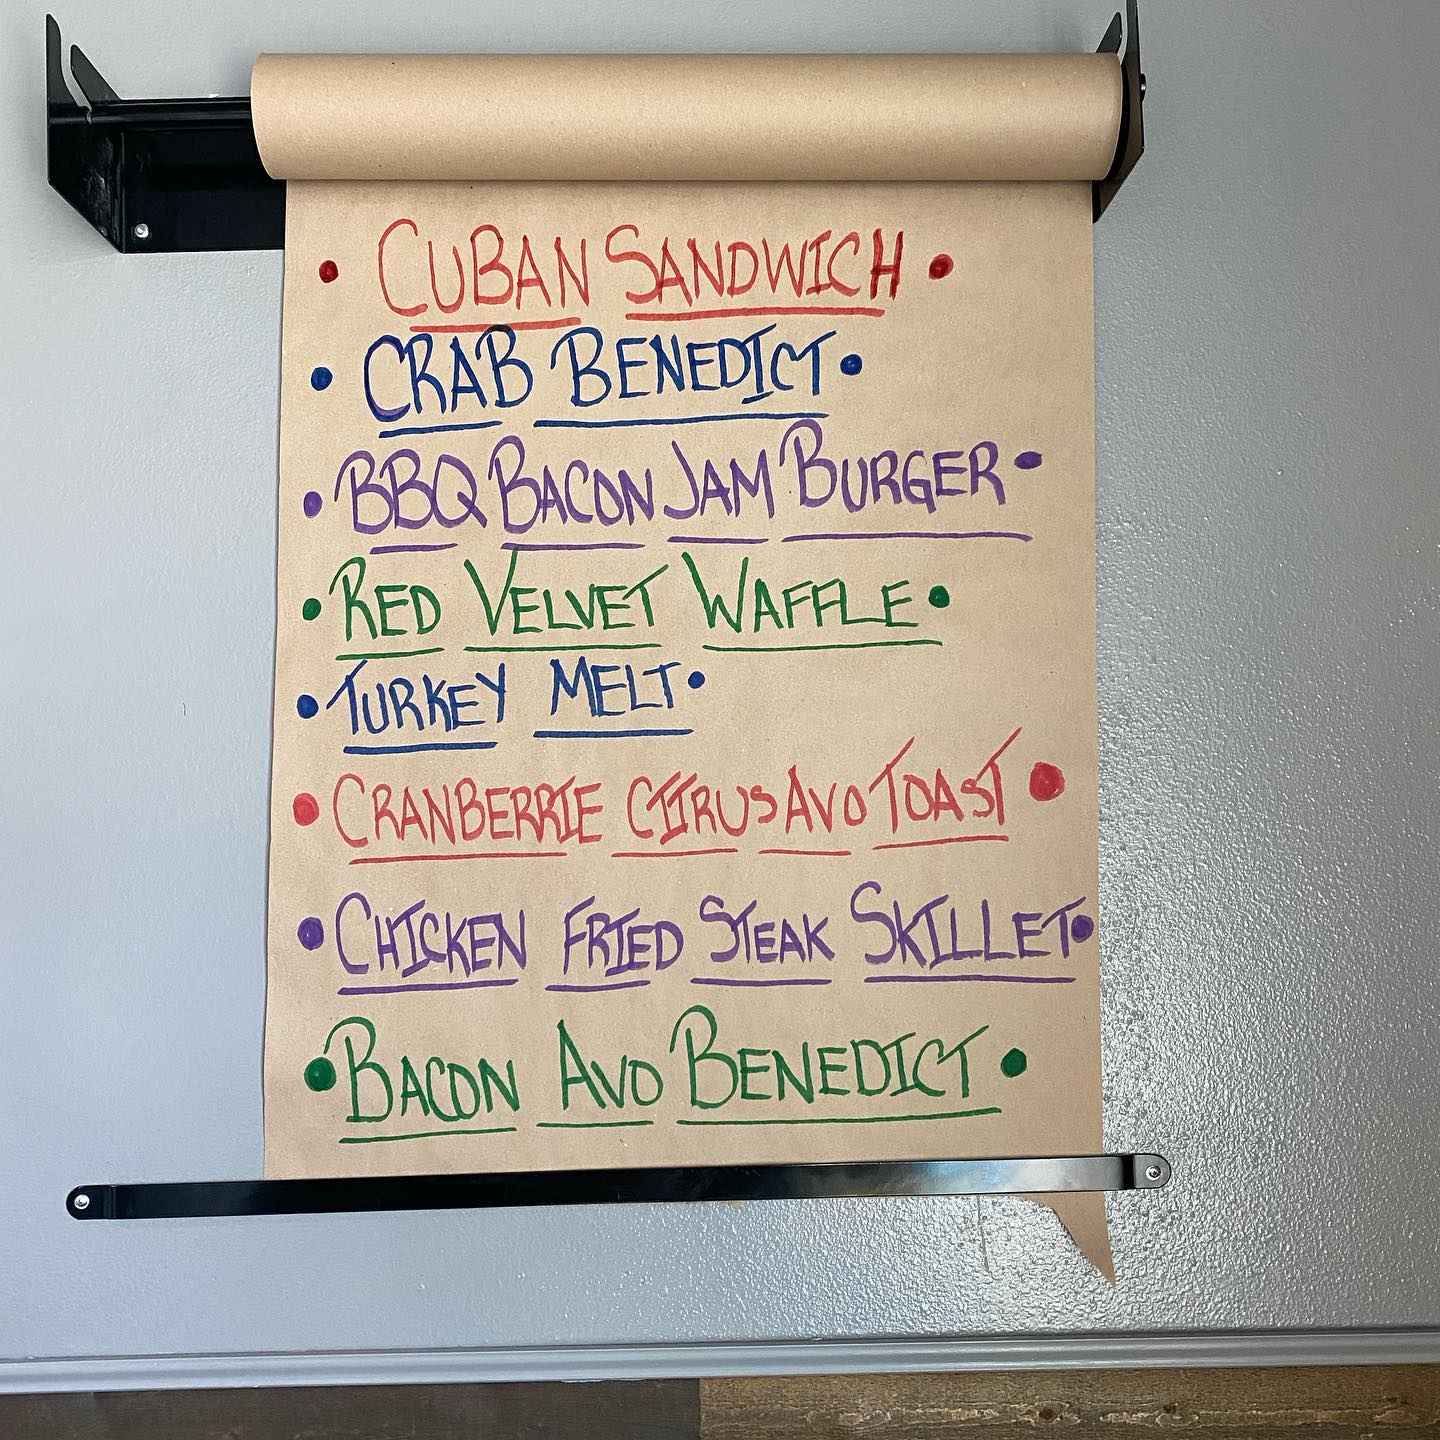 • CUBAN SANDWICH •
• CRAB BENEDICT •
• BBQ BACON JAM BURGER •
• RED VELVET WAFFLE •
• TURKEY MELT •
• CRANBERRIE CITRUS AVO TOAST •
• CHICKEN FRIED STEAK SKILLET •
• BACON AVO BENEDICT •